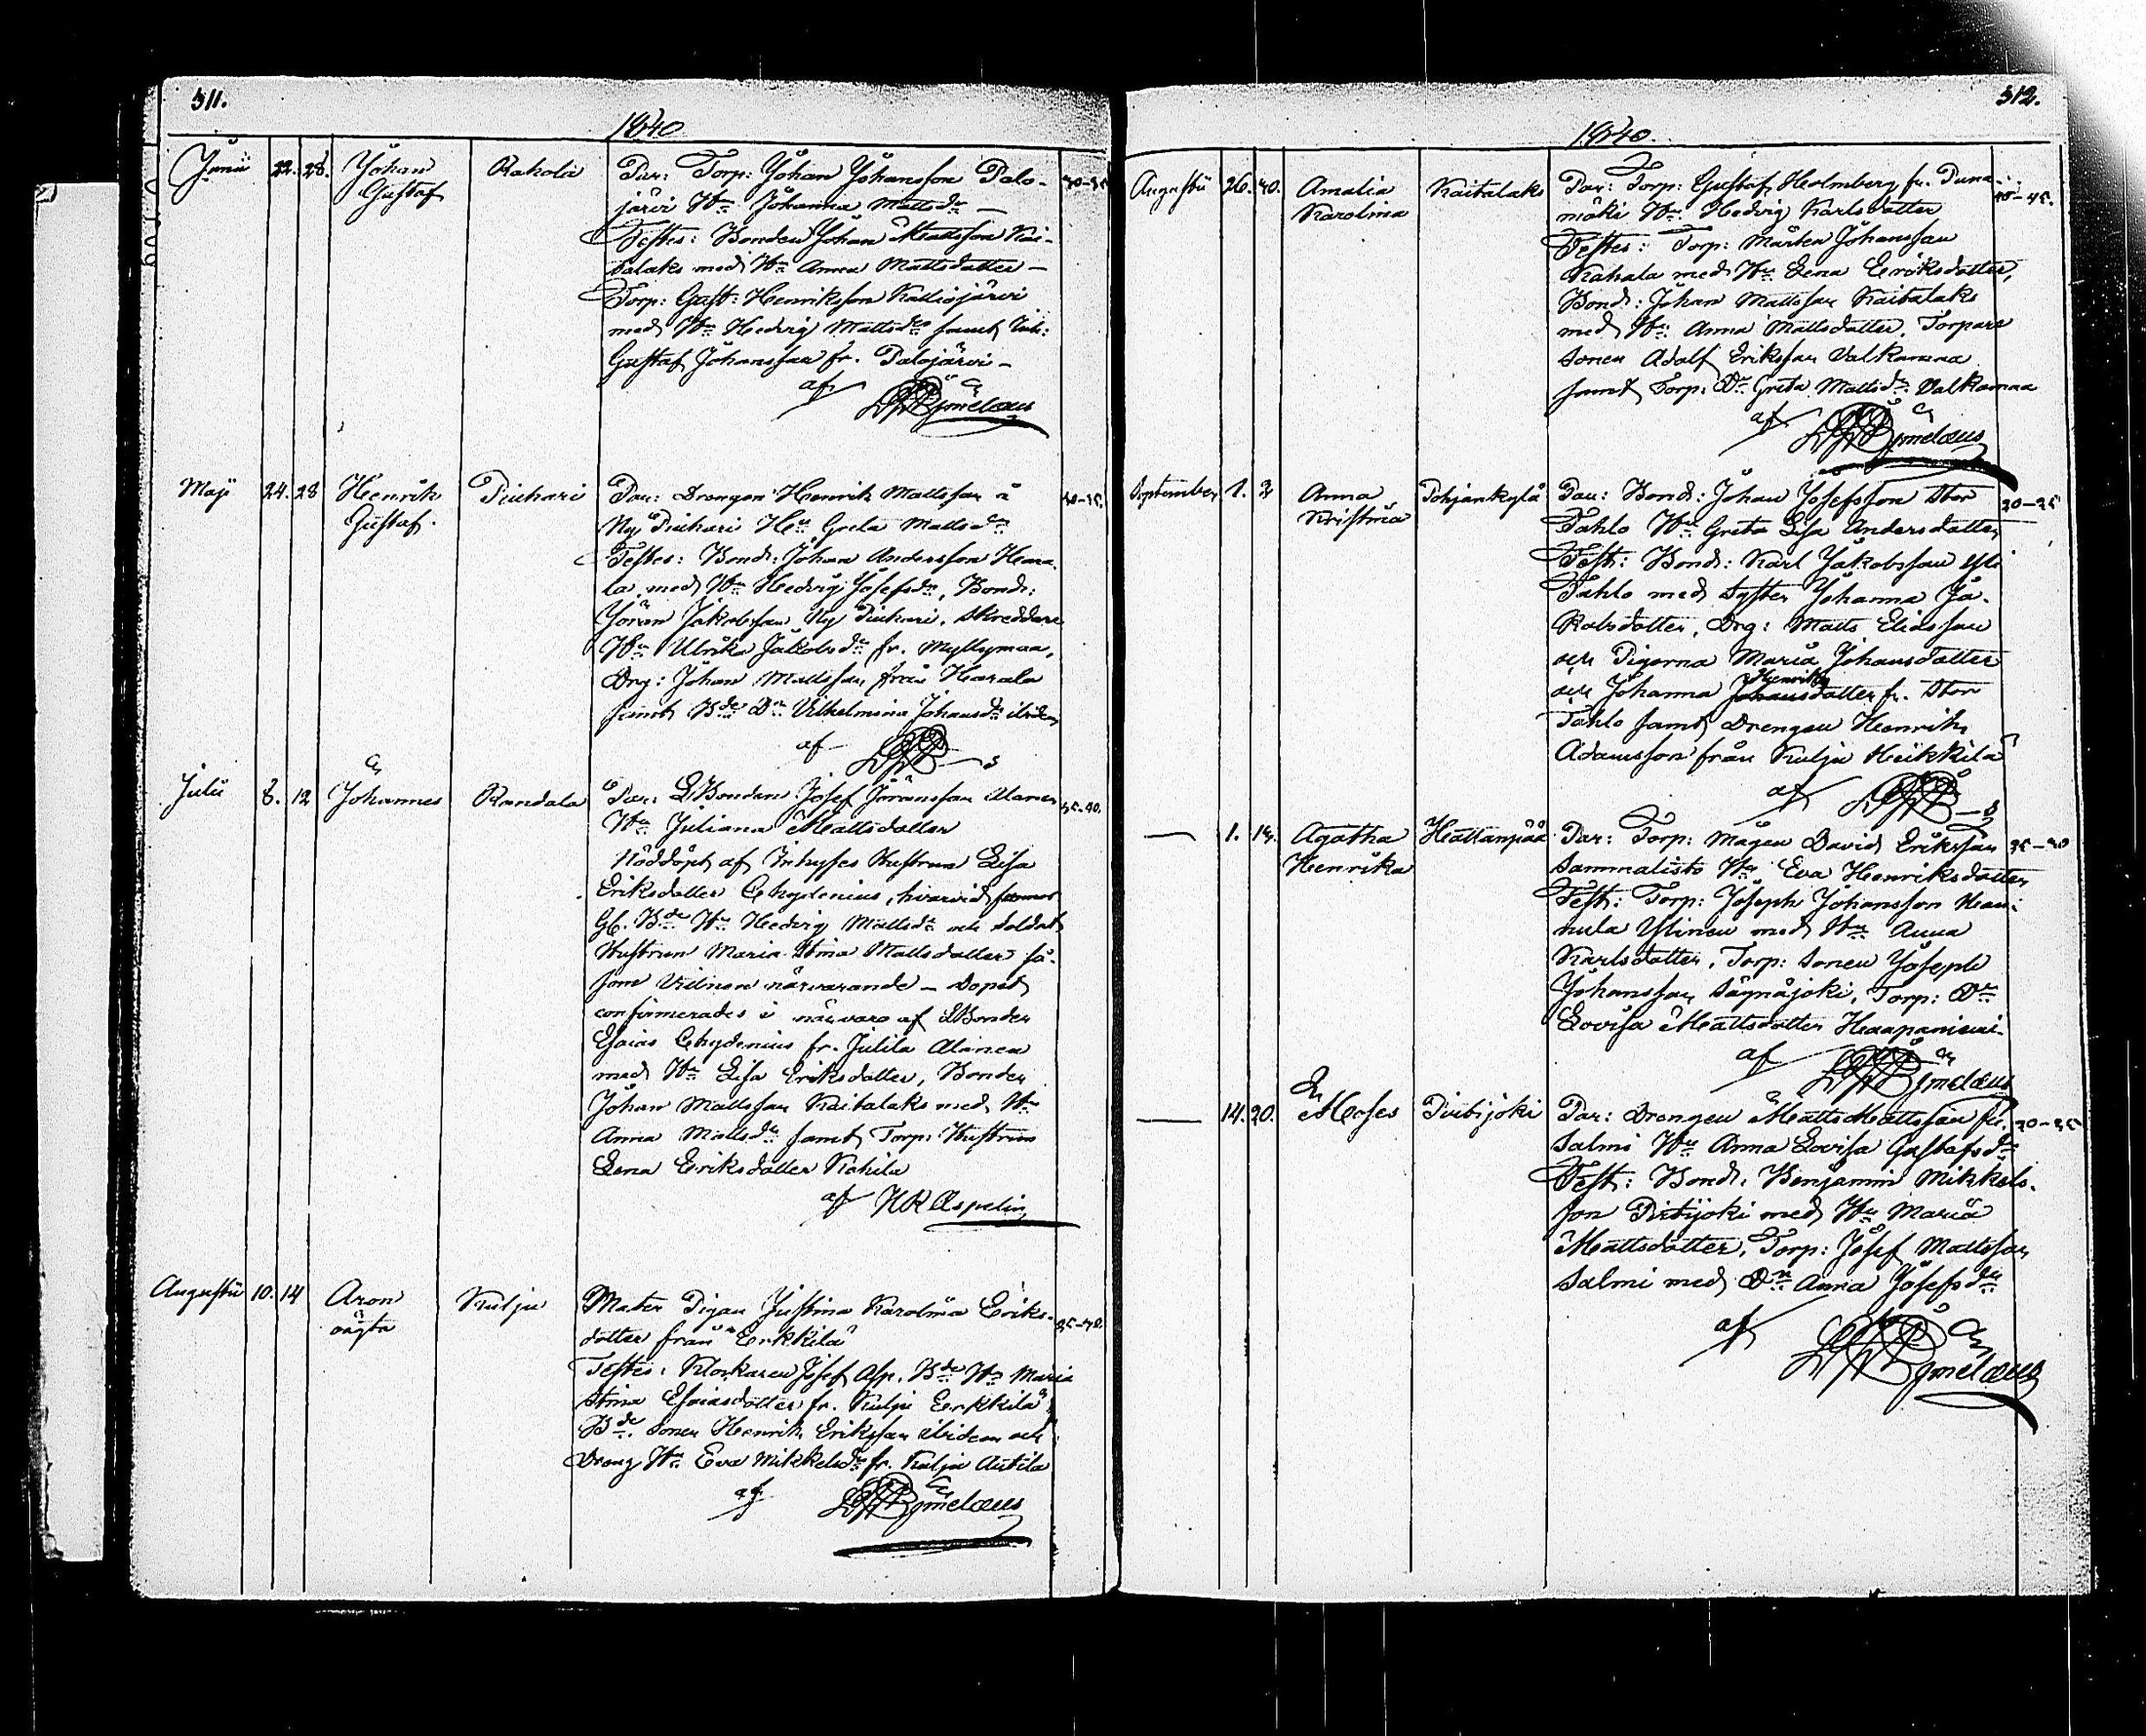 311.
1840
Junii 22. 28. Johan Gustaf Rahola Par: Torp: Johan Johansson Palo- 30-35
järvi Hu Johanna Mattsdr —
Testes: Bonden Johan Mattsson Kai-
talaks med Hu Anna Mattsdatter —
Torp: Gust: Henriksson Kalliojärvi
med Hu Hedvig Mattsdr samt Inh:
Gustaf Johansson fr. Palojärvi —
af
Maji 24. 28 Henrik Gustaf. Piuhari Par: Drengen Henrik Mattsson å 30-35.
Ny Piuhari Hu Greta Mattsdr
Testes: Bond: Johan Andersson
la med Hu Hedvig Josefsdr, Bond:
Jöran Jakobsson Ny Piuhari, Skreddare
Hu Ulrika Jakobsdr fr. Myllymaa,
Drg: Johan Mattsson från Harala
samt Bde Dr Vilhelmina Johansdr ibidem
af
Julii 8. 12 Johannes Randala Par: LBonden Josef Jöransson Alanen 35-40.
Hu Juliana Mattsdotter
Nöddöpt af Inhyses Hustrun Lisa
Eriksdotter Chydenius, hvarvid
Gl. Bde Hu Hedvig Mattsdr och Soldat
Hustrun Maria Stina Mattsdotter så-
som vitnen närvarande — Dopet
confirmerades i närvaro af LBonden
Esaias Chydenius fr. Julila Alanen
med Hu Lisa Eriksdotter, Bonden
Johan Mattsson Kaitalaks med Hu
Anna Mattsdr samt Torp: Hustrun
Lena Eriksdotter
af H R Aspelin
Augusti 10. 14 Aron oägta Kulju Mater Pigan Justina Karolina Eriks- 35-40.
dotter från Erkkilä
Testes: Klockaren Josef Asp, Bde Hu Maria
Stina Esaiasdotter fr. Kulju Erkkilä
Bde Sonen Henrik Eriksson ibidem och
Dreng Hu Eva Mikkelsdr fr. Kulju Antila
af
312.
1840.
Augusti 26. 30. Amalia Karolina Kaitalaks Par: Torp: Gustaf Holmberg fr. Puna- 40-45.
mäki Hu Hedvig Karlsdotter
Testes: Torp: Mårten Johansson
Kahala med Hu Lena Eriksdotter,
Bond: Johan Mattsson Kaitalaks
med Hu Anna Mattsdotter, Torpare
Sonen Adolf Eriksson Valkamaa
samt Torp: Dr Greta Mattsdr Valkamaa
af
September 1. 3 Anna Kristina Pohjankylä Par: Bond: Johan Josefsson Stor 30-35
Pahlo Hu Greta Lisa Andersdotter
Test: Bond: Karl Jakobsson
Pahlo med Syster Johanna Ja-
kobsdotter, Drg: Matts Eliasson
och Pigorna Maria Johansdotter
Henriks
och Johanna Johansdotter fr. Stor
Pahlo samt Drengen Henrik
Adamsson från Kulju Heikkilä
af
— 1. Agatha Henrika Hattanpää Par: Torp: Mågen David Eriksson 35-40
Sammalisto Hu Eva Henriksdotter
Test: Torp: Joseph Johansson
Ylinen med Hu Anna
Karlsdotter, Torp: Sonen Joseph
Johansson Säynäjoki, Torp: Dr
Lovisa Mattsdotter Haapaniemi
af
— 14. 20. Moses Pirttijoki Par: Drengen Matts Mattsson fr. 30-35
Salmi Hu Anna Lovisa Gustafsdr
Test: Bond: Benjamin Mikkels-
son Pirttijoki med Hu Maria
Mattsdotter, Torp: Josef Mattsson
Salmi med Dr Anna Josefsdr
af